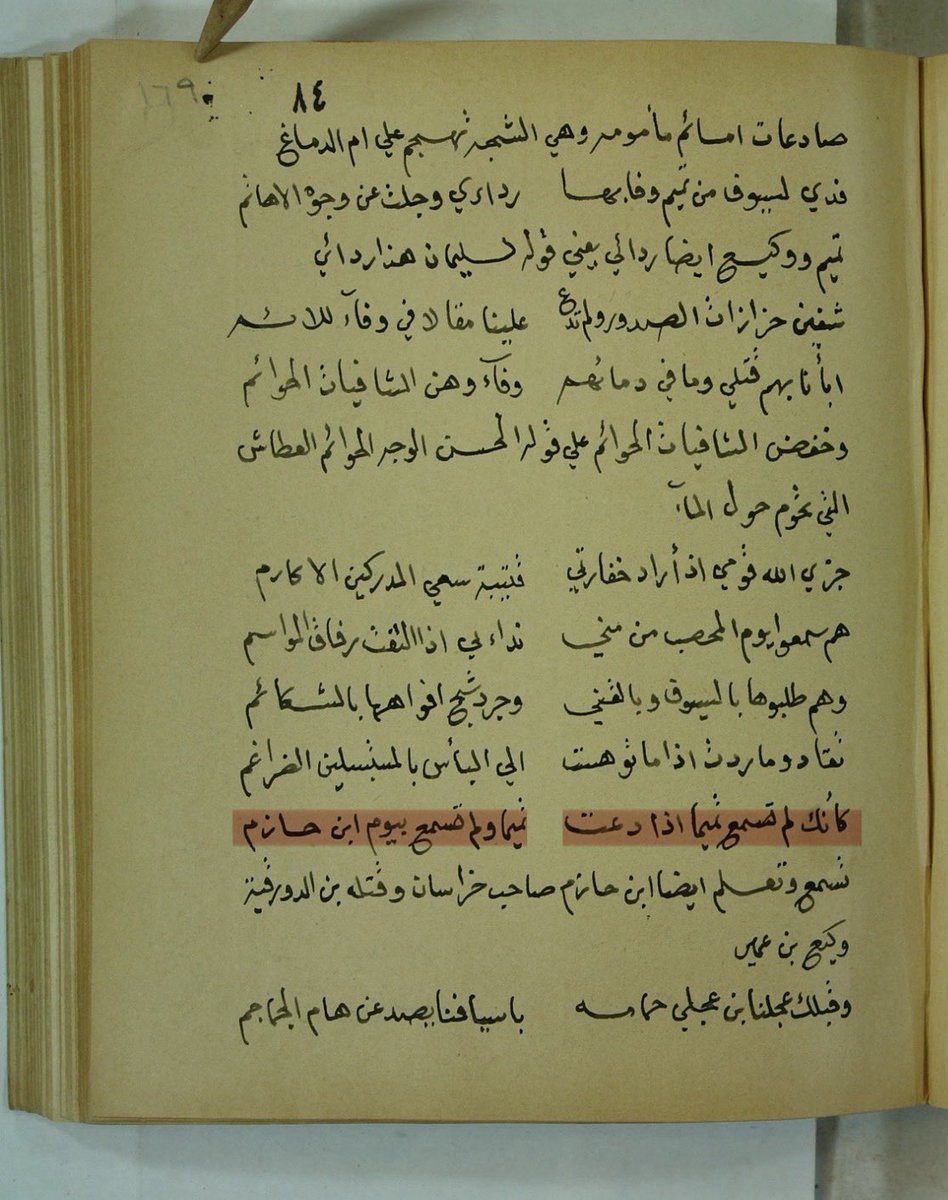 ١٦٩
٨٤
صادعات امسائم مأمومه وهي الشجه تهجم علي ام الدماغ
فدي لسيوف من تميم وفابها ردائي وجلت عن وجوه الاهاتم
تميم ووكيع ايضا ردائي يعني قوله لسليمان هذا ردائي
شفين حزازات الصدور ولم تدع علينا مقالا في وفآء للائم
ابأنا بهم قتلي وما في دمائهم وفآء وهن الشافيات الحوائم
وخفض الشافيات الحوائم علي قوله الحسن الوجه الحوائم العطاش
التي تحوم حول المآء
جزي الله قومي اذ أراد خفارتي قتيبة سعي المدركين الاكارم
هم سمعوا يوم المحصب من مني نداءي اذا التفت رفاق المواسم
وهم طلبوها بالسيوف وبالقني وجرد شج افواهها بالشكائم
تقاد وما ردت اذا ما توهست الي البأس بالمستبسلين الضراغم
كأنك لم تسمع تميما اذا دعت تميما ولم تسمع بيوم ابن حازم
تسمع وتعلم ايضا ابن حازم صاحب خراسان وقتله بن الدورقية
وكيع بن عمير
وقبلك عجلنا بن عجلي حمامه باسيافنا يصدعن هام الجماجم